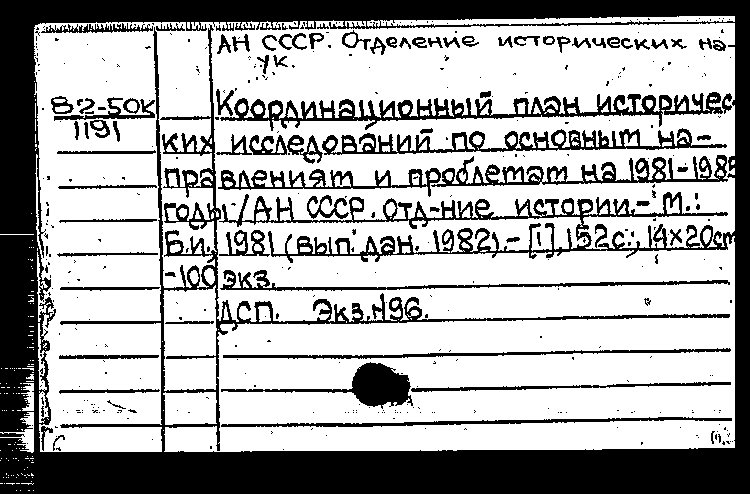 АН СССР. Отделение исторических на-
ук.
82-50К
1191
Координационный план историчес
ких исследований по основным на-
правлениям и проблемам на 1981-1985
годы/АН СССР. Отд-ние истории.- М.:
Б.и., 1981 (вып. дан. 1982).- [1], 152с.; 14×20см
-100 экз.
ДСП. Экз.№96.